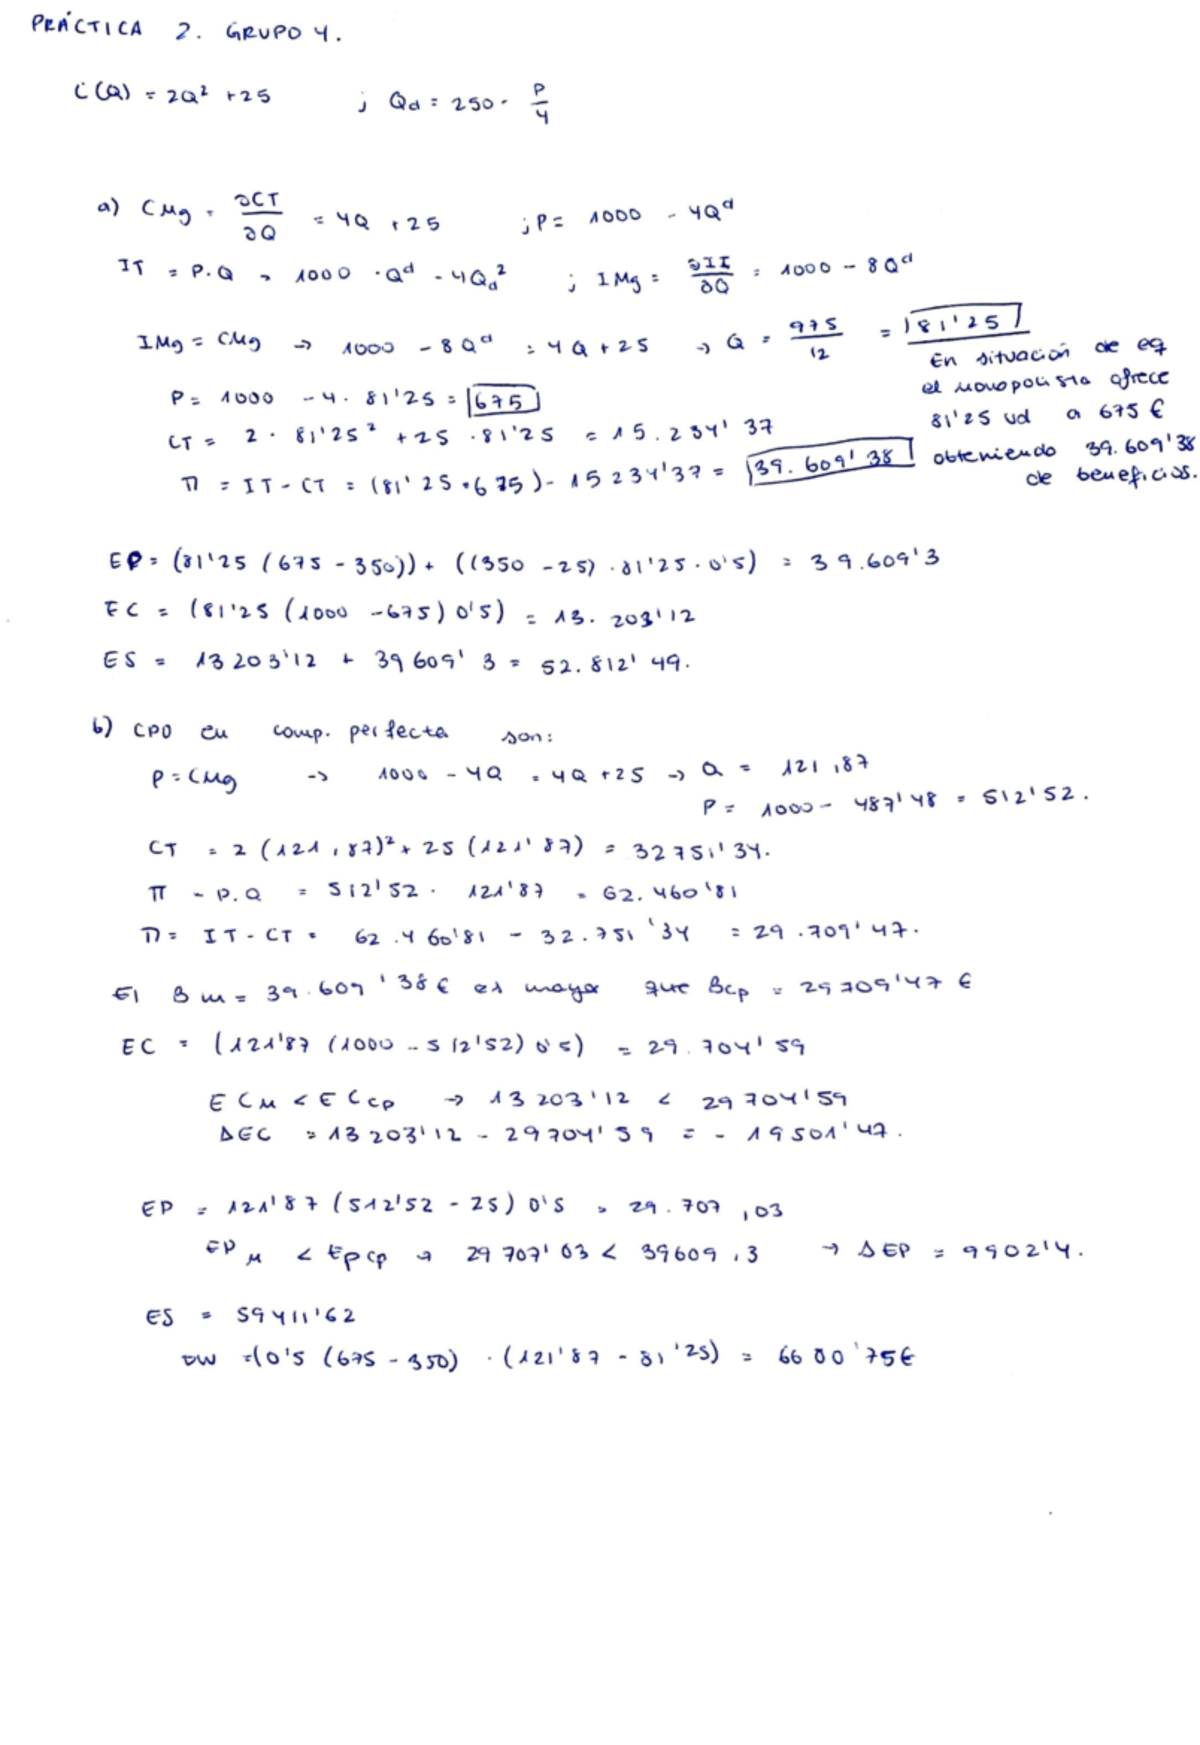 PRÁCTICA 2. GRUPO 4.
C(Q) = 2Q² + 25 ; Qd = 250 - P/4
a) CMg = ∂CT/∂Q = 4Q + 25 ; P = 1000 - 4Qᵈ
IT = P.Q → 1000 · Qᵈ - 4Qd² ; IMg = ∂II/∂Q = 1000 - 8Qᵈ
IMg = CMg → 1000 - 8Qᵈ = 4Q + 25 → Q = 975/12 = 81'25
P = 1000 - 4. 81'25 = 675
CT = 2 · 81'25² + 25 · 81'25 = 15.234'37
Π = IT - CT = (81'25 · 675) - 15234'37 = 39.609'38
En situación de eq
el monopolista ofrece
81'25 ud a 675 €
obteniendo 39.609'38
de beneficios.
EP = (81'25 (675 - 350)) + ((350 - 25) · 81'25 · 0'5) = 39.609'3
EC = (81'25 (1000 - 675) 0'5) = 13.203'12
ES = 13203'12 + 39609'3 = 52.812'49.
b) CPO en comp. perfecta son:
P = CMg → 1000 - 4Q = 4Q + 25 → Q = 121,87
P = 1000 - 487'48 = 512'52.
CT = 2 (121,87)² + 25 (121'87) = 32751'34.
Π - P.Q = 512'52 · 121'87 = 62.460'81
Π = IT - CT = 62.460'81 - 32.751'34 = 29.709'47.
El Bm = 39.609'38 € es mayor que Bcp = 29709'47 €
EC = (121'87 (1000 - 512'52) 0'5) = 29.704'59
ECM < ECcp → 13203'12 < 29704'59
ΔEC = 13203'12 - 29704'59 = - 19501'47.
EP = 121'87 (512'52 - 25) 0'5 = 29.707,03
EPM < Epcp → 29707'03 < 39609,3 → ΔEP = 9902'4.
ES = 59411'62
DW = (0'5 (675 - 350) · (121'87 - 81'25) = 6600'75€